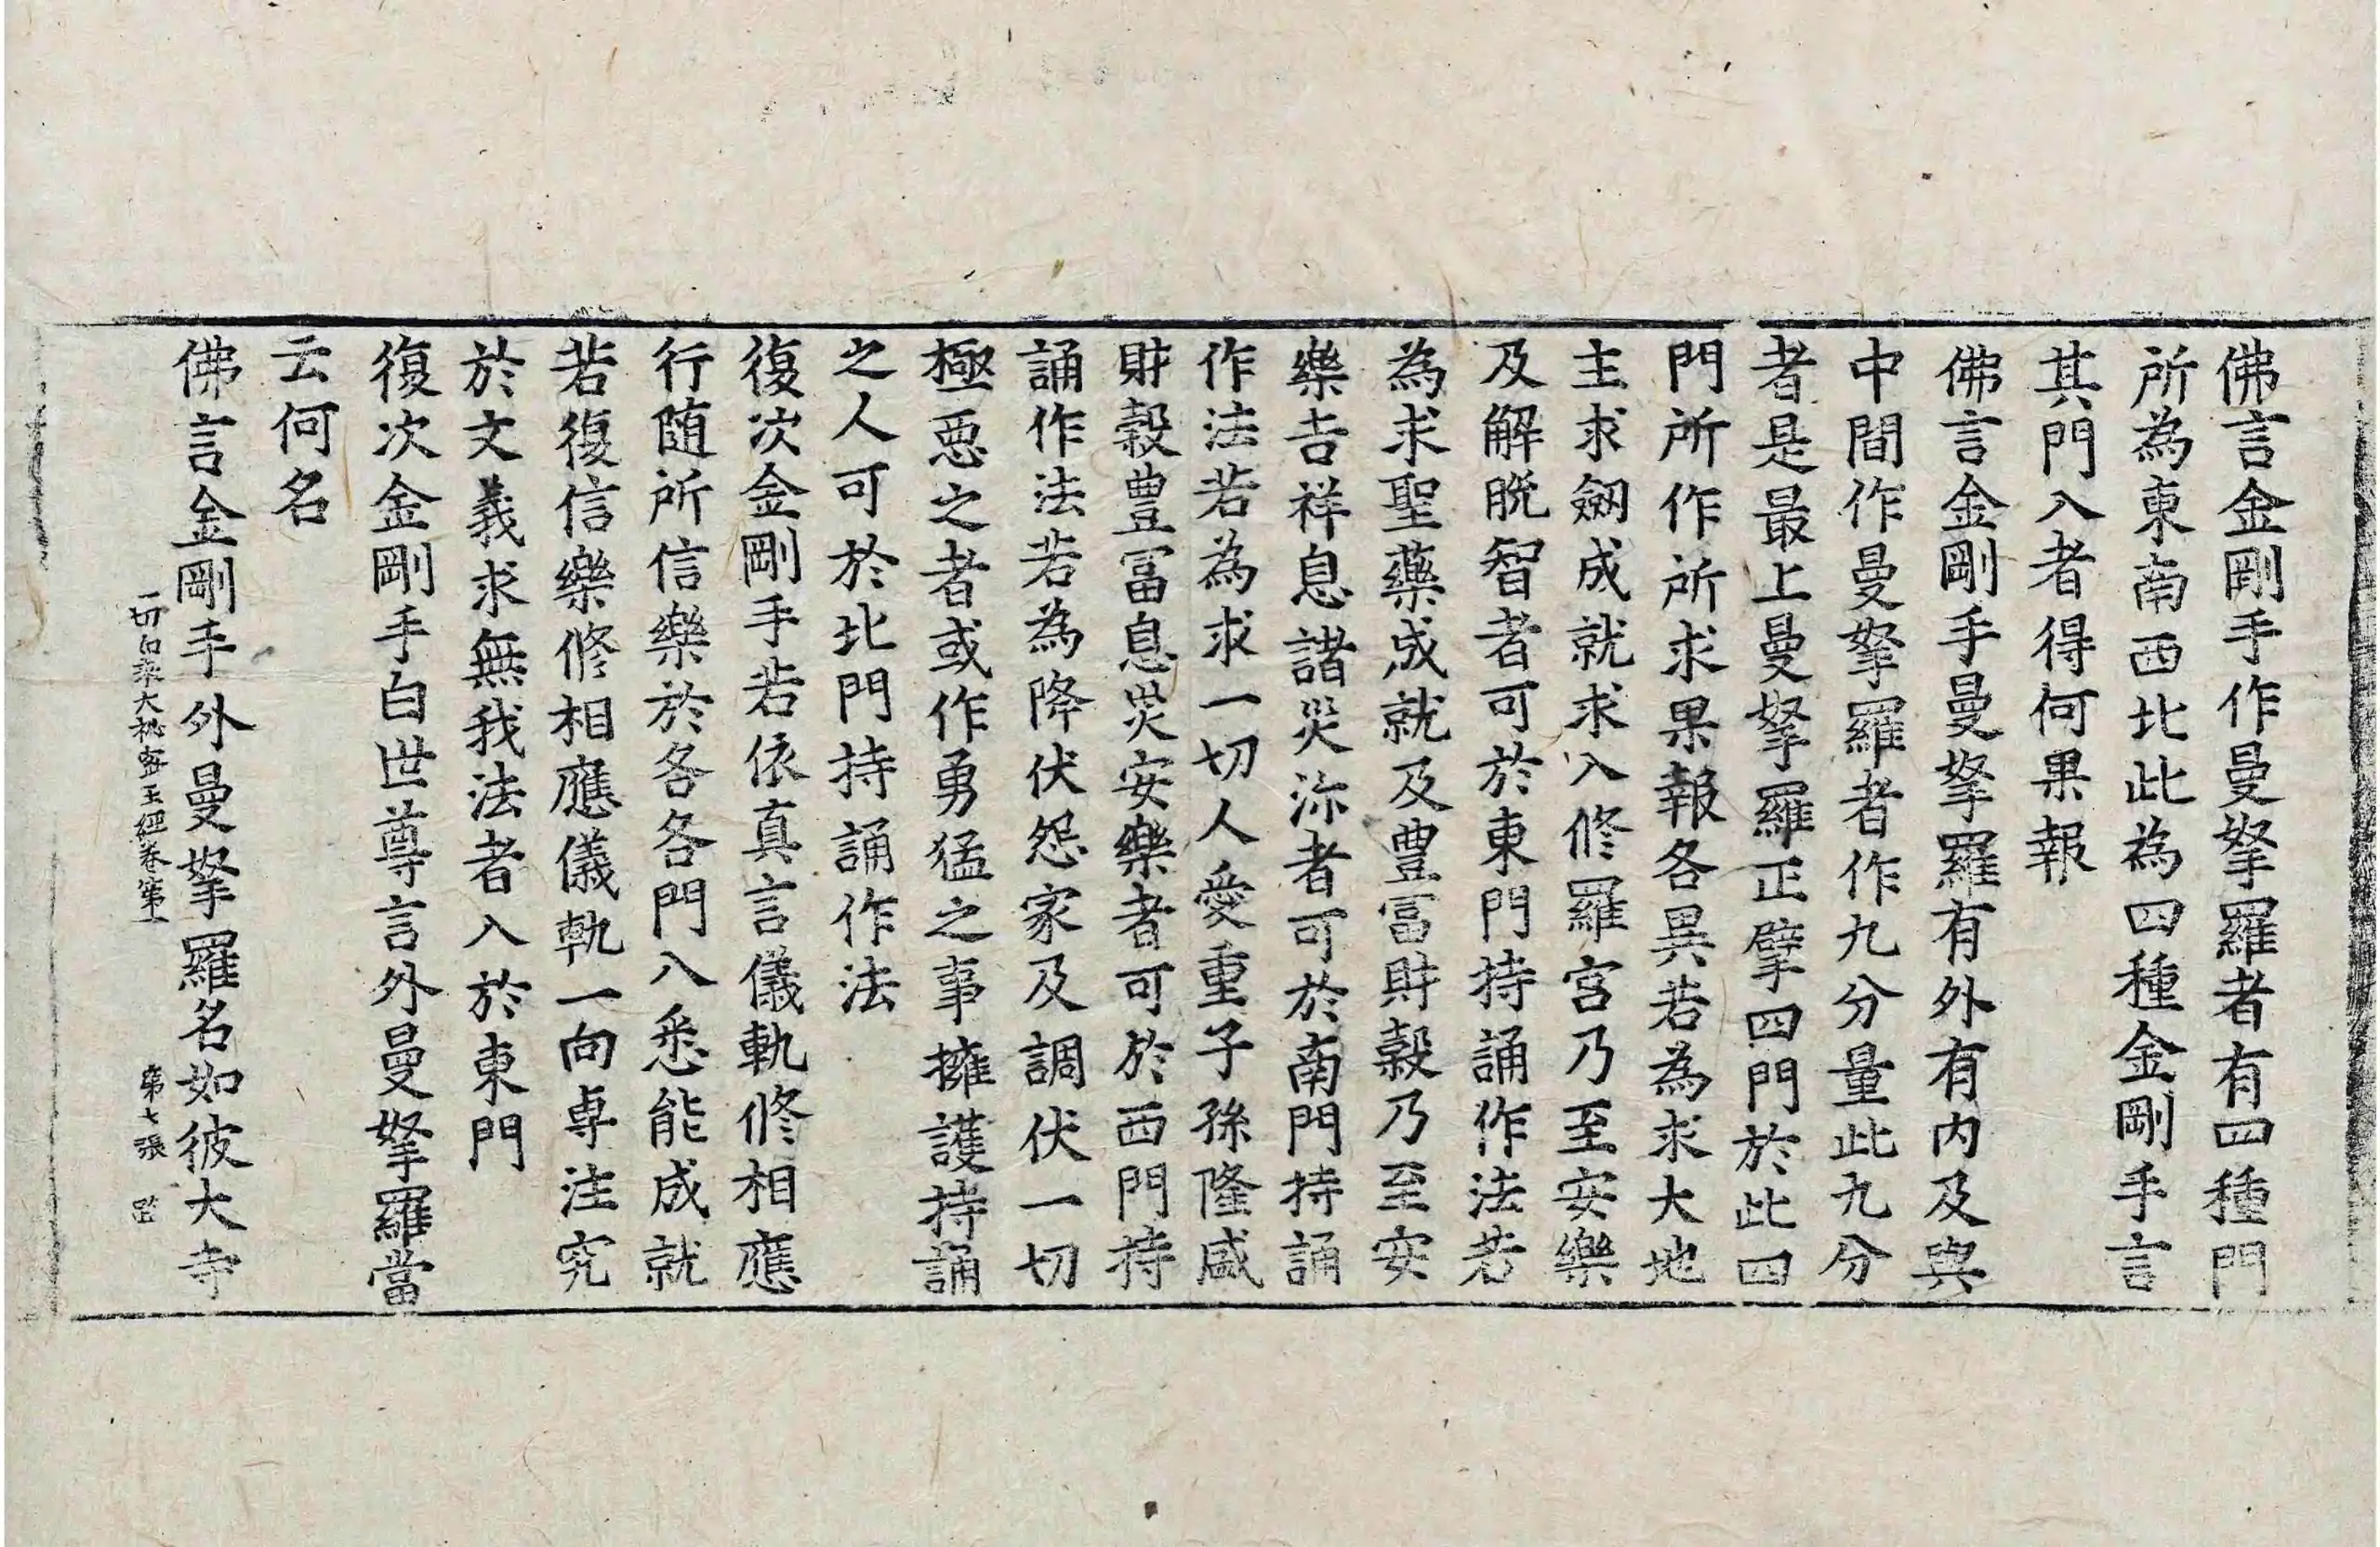 佛言金剛手作曼拏羅者有四種門
所為東南西北此為四種金剛手言
其門入者得何果報
佛言金剛手曼拏羅有外有内及與
中間作曼拏羅者作九分量此九分
者是最上曼拏羅正擘四門於此四
門所作所求果報各異若為求大地
主求劒成就求入修羅宮乃至安樂
及解脱智者可於東門持誦作法若
為求聖藥成就及豊冨財穀乃至安
樂吉祥息諸災沵者可於南門持誦
作法若為求一切人愛重子孫隆盛
財穀豊冨息災安樂者可於西門持
誦作法若為降伏怨家及調伏一切
極悪之者或作勇猛之事擁護持誦
之人可於北門持誦作法
復次金剛手若依真言儀軌修相應
行随所信樂於各各門入悉能成就
若復信樂修相應儀軌一向専注究
於文義求無我法者入於東門
復次金剛手白世尊言外曼拏羅當
云何名
佛言金剛手外曼拏羅名如彼大寺
一切如來大秘密王經卷第上 第七張